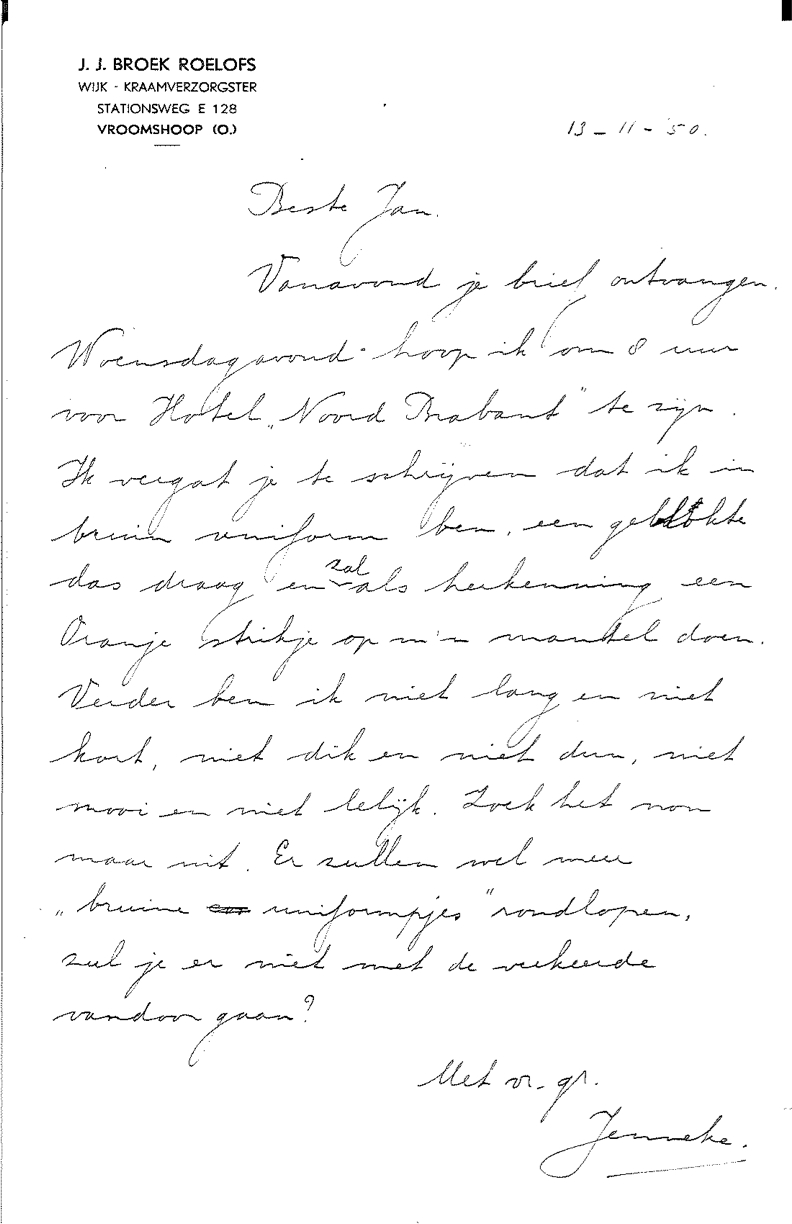 J. J. BROEK ROELOFS
WIJK - KRAAMVERZORGSTER
STATIONSWEG E 128
VROOMSHOOP (O.)
13 - 11 - '50.
Beste Jan.
Vanavond je brief ontvangen.
Woensdagavond hoop ik om 8 uur
voor Hotel „Noord Brabant" te zijn.
Ik vergat je te schrijven dat ik in
bruin uniform ben, een geblokte
das draag en zal als herkenning een
Oranje strikje op m'n mantel doen.
Verder ben ik niet lang en niet
kort, niet dik en niet dun, niet
mooi en niet lelijk. Zoek het nou
maar uit. Er zullen wel meer
„bruine uniformpjes" rondlopen,
zul je er niet met de verkeerde
vandoor gaan?
Met vr. gr.
Jenneke.